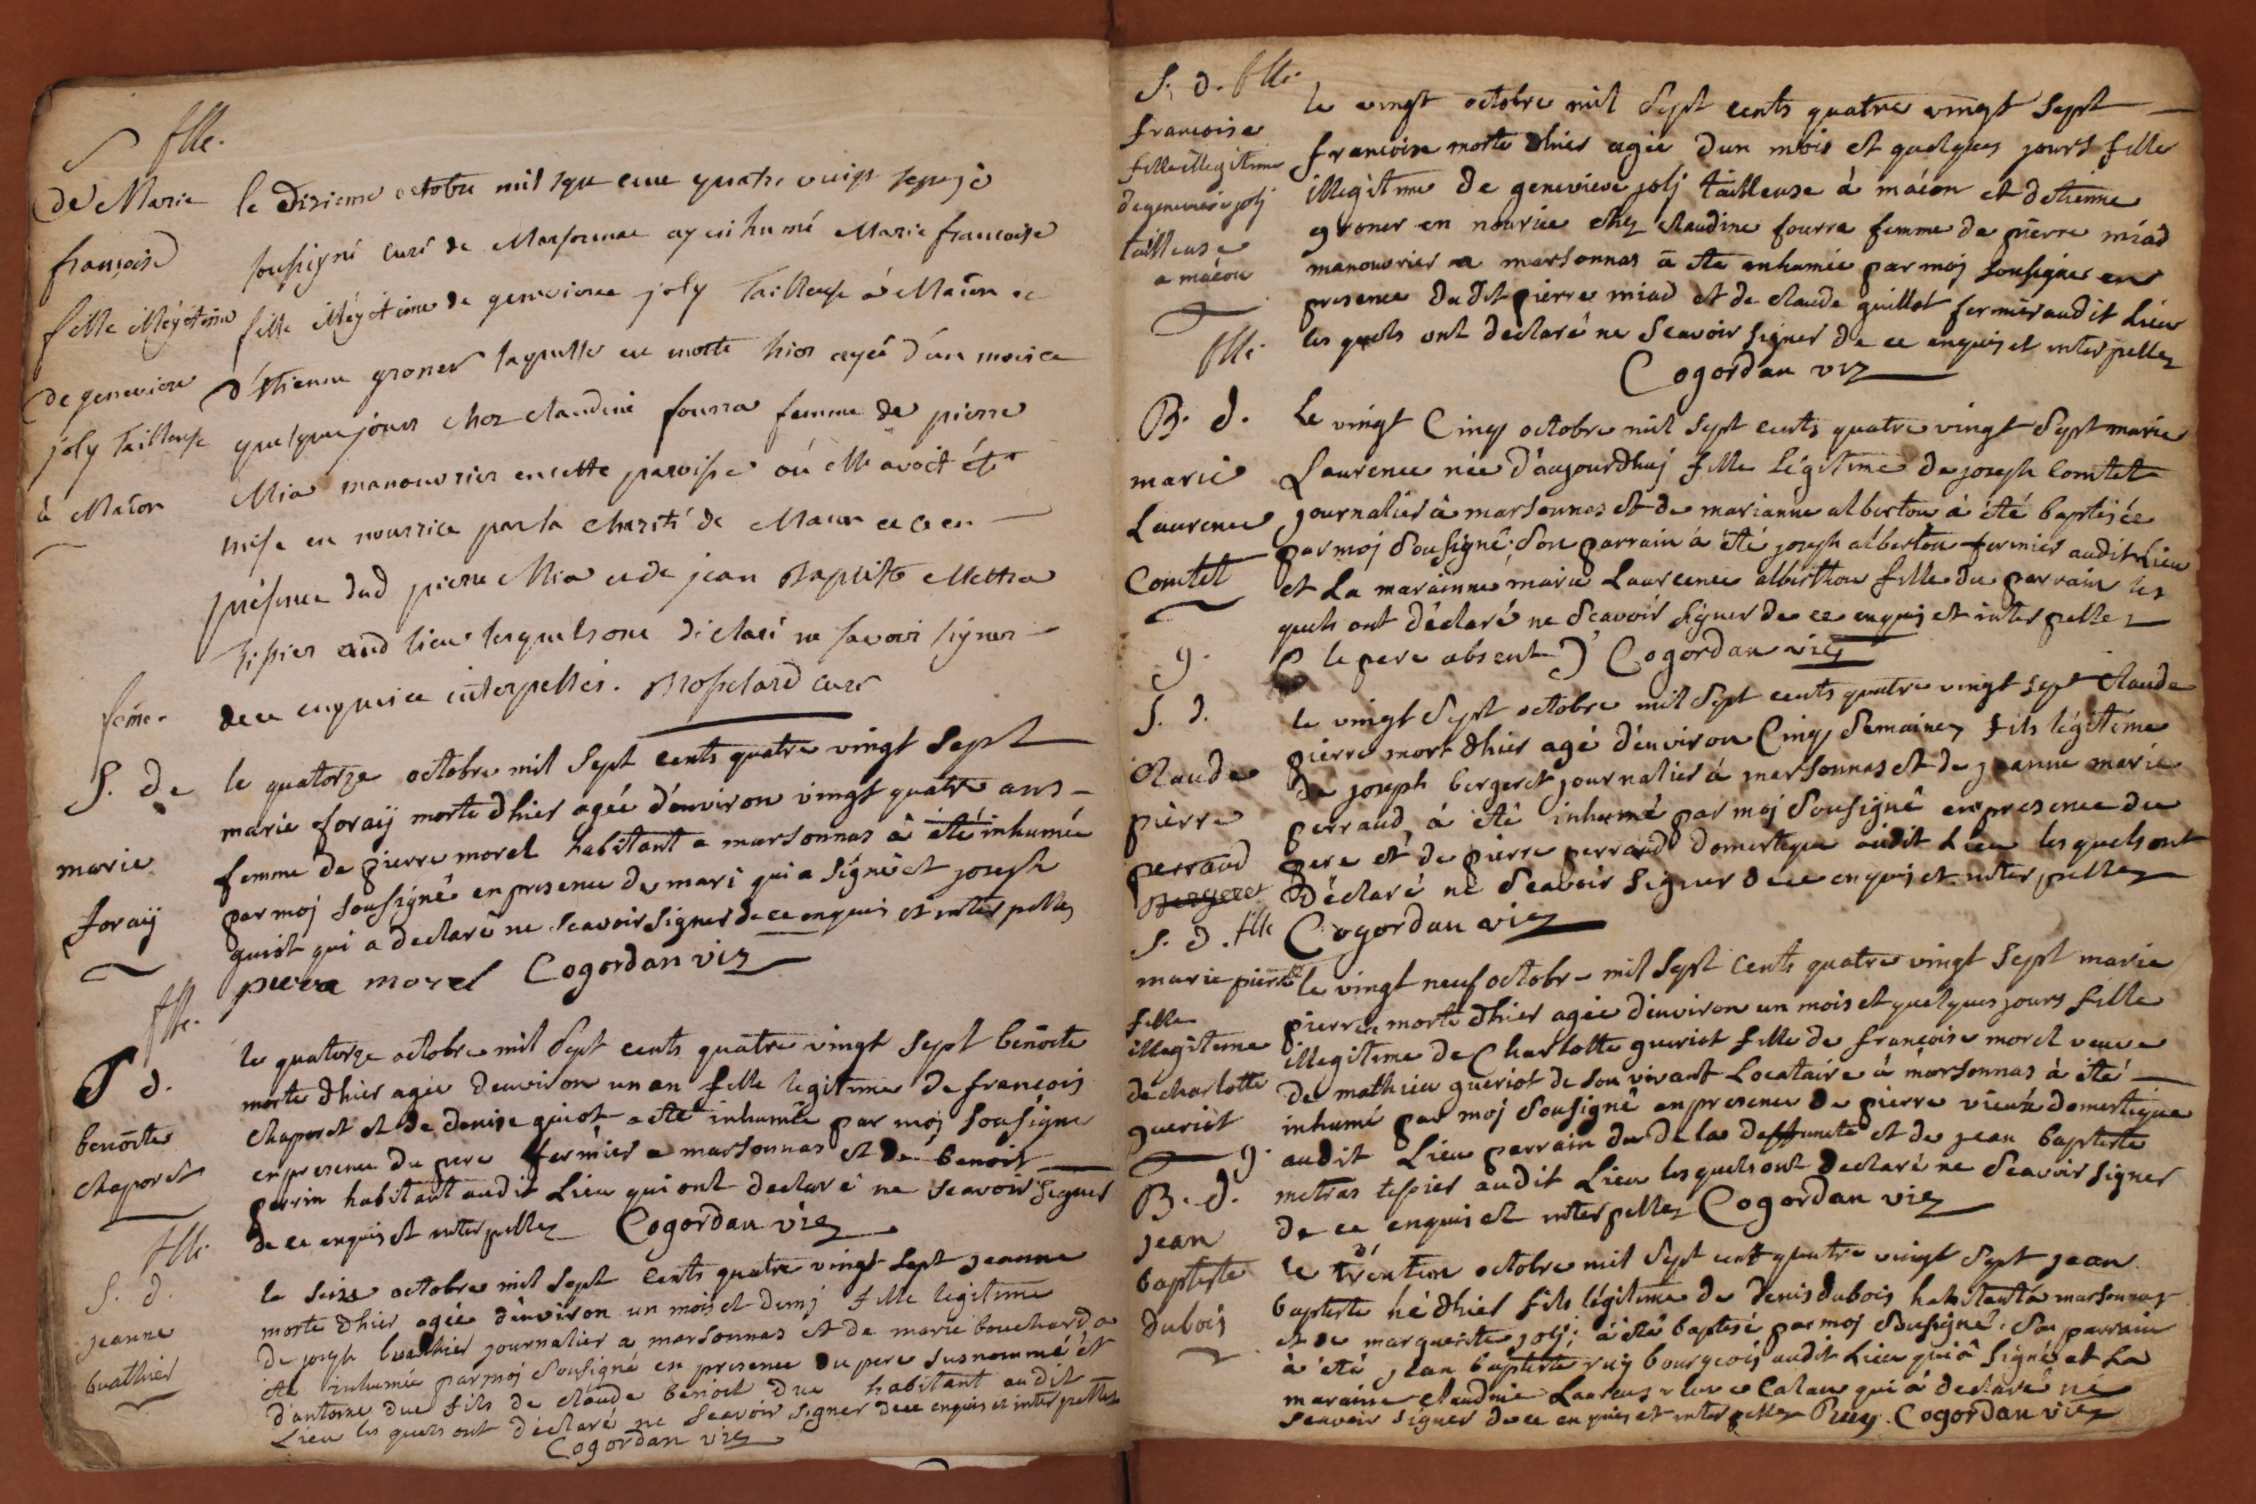 S flle.
de Marie
françoise
fille illégitime
de genevieve
joly tailleuse
à Macon
le dixieme octobre mil sept cent quatre vingt sept je
soussigné curé de Marsonnas ay inhumé Marie françoise
fille illégitime de genevieve joly tailleuse à Macon et
d'étienne groner laquelle est morte hier agée d'un mois et
quelque jours chez claudine fourra femme de pierre
Mia manouvrier en cette paroisse où elle avoit été
mise en nourrice par la charité de Macon et ce en
présence dud pierre Mia et de jean Baptiste Mettra
tissier aud lieu lesquels ont déclaré ne savoir signer
de ce enquis et interpellés. curé
feme.
S. de
marie
foraij
le quatorze octobre mil sept cents quatre vingt sept
marie foraij morte d'hier agée d'environ vingt quatre ans
femme de pierre morel habitant a marsonnas à été inhumée
par moj sousigné en presence du mari qui a signé et joseph
guiot qui a declaré ne scavoir signer de ce enquis et interpellez
pierre morel Cogordan viz
flle.
S d.
benoite
chaporet
le quatorze octobre mil sept cents quatre vingt sept benoite
morte d'hier agée denviron un an fille legitime de francois
chaporet et de denise guiot a été inhumée par moj sousigné
en presence du pere fermier a marsonnas et de benoit
perrin habitant audit Lieu qui ont declaré ne scavoir signer
de ce enquis et interpellez Cogordan viz
flle.
S. d.
jeanne
buathier
le seize octobre mil sept cents quatre vingt sept jeanne
morte d'hier agée d'environ un mois et demj fille legitime
de joseph buathier journalier a marsonnas et de marie bouchard a
été inhumée par moj sousigné en presence du pere susnommé et
d'antoine duc fils de claude benoit duc habitant audit
Lieu les quels ont déclaré ne scavoir signer de ce enquis et interpellez
Cogordan viz
S. d. flle.
francoise
fille illegitime
de genevieve jolj
tailleuse
a macon
le vingt octobre mil sept cents quatre vingt sept
francoise morte d'hier agée d'un mois et quelques jours fille
illegitime de genevieve jolj tailleuse à mâcon et detienne
groner en nourice chez claudine fourra femme de pierre miad
manouvrier a marsonnas a été enhumée par moj sousigné en
presence du dit pierre miad et de claude guillot fermier audit Lieu
les quels ont declaré ne scavoir signer de ce enquis et interpellez
Cogordan viz
flle.
B. d.
marie
Laurence
Comtet
Le vingt Cinq octobre mil sept cents quatre vingt sept marie
Laurence née d'aujourdhuj fille légitime de joseph Comtet
journalier à marsonnas et de marianne alberton à été baptisée
par moj sousigné; son parrain à été joseph alberton fermier audit Lieu
et La marainne marie Laurence alberthon fille du parrain les
quels ont déclaré ne scavoir signer de ce enquis et interpellez
( le pere absent ) Cogordan viz
g.
S. d.
Claude
pierre
perraud
Bergeret
le vingt sept octobre mil sept cents quatre vingt sept Claude
pierre mort d'hier agé d'environ Cinq semaines fils légitime
de joseph bergeret journalier à marsonnas et de jeanne marie
perraud, à été inhumé par moj sousigné en presence du
pere et de pierre perraud domestique audit Lieu les quels ont
déclaré ne scavoir signer de ce enquis et interpellez
Cogordan viz
S. d. flle
marie pierre
fille
illegiteme
de charlotte
gueriot
le vingt neuf octobre mil sept cents quatre vingt sept marie
pierre morte d'hier agée d'environ un mois et quelques jours fille
illegitime de Charlotte gueriot fille de françoise morel veuve
de mathieu gueriot de son vivant Locataire à marsonnas à été
inhumé par moj sousigné en presence de pierre vieux domestique
audit Lieu parrain du de la deffuncte et de jean baptiste
metras tessier audit Lieu les quels ont declaré ne scavoir signer
de ce enquis et interpellez Cogordan viz
g.
B. d.
jean
baptiste
dubois
le trention octobre mil sept cent quatre vingt sept jean
baptiste né d'hier fils légitime de denis dubois habitant à marsonnas
et de marguerite jolj; à été baptisé par moj sousigné. son parrain
à été jean baptiste ruy bourgeois audit Lieu qui à signé et La
maraine claudine qui à declaré ne
scavoir signer de ce enquis et interpellez Ruy. Cogordan viz